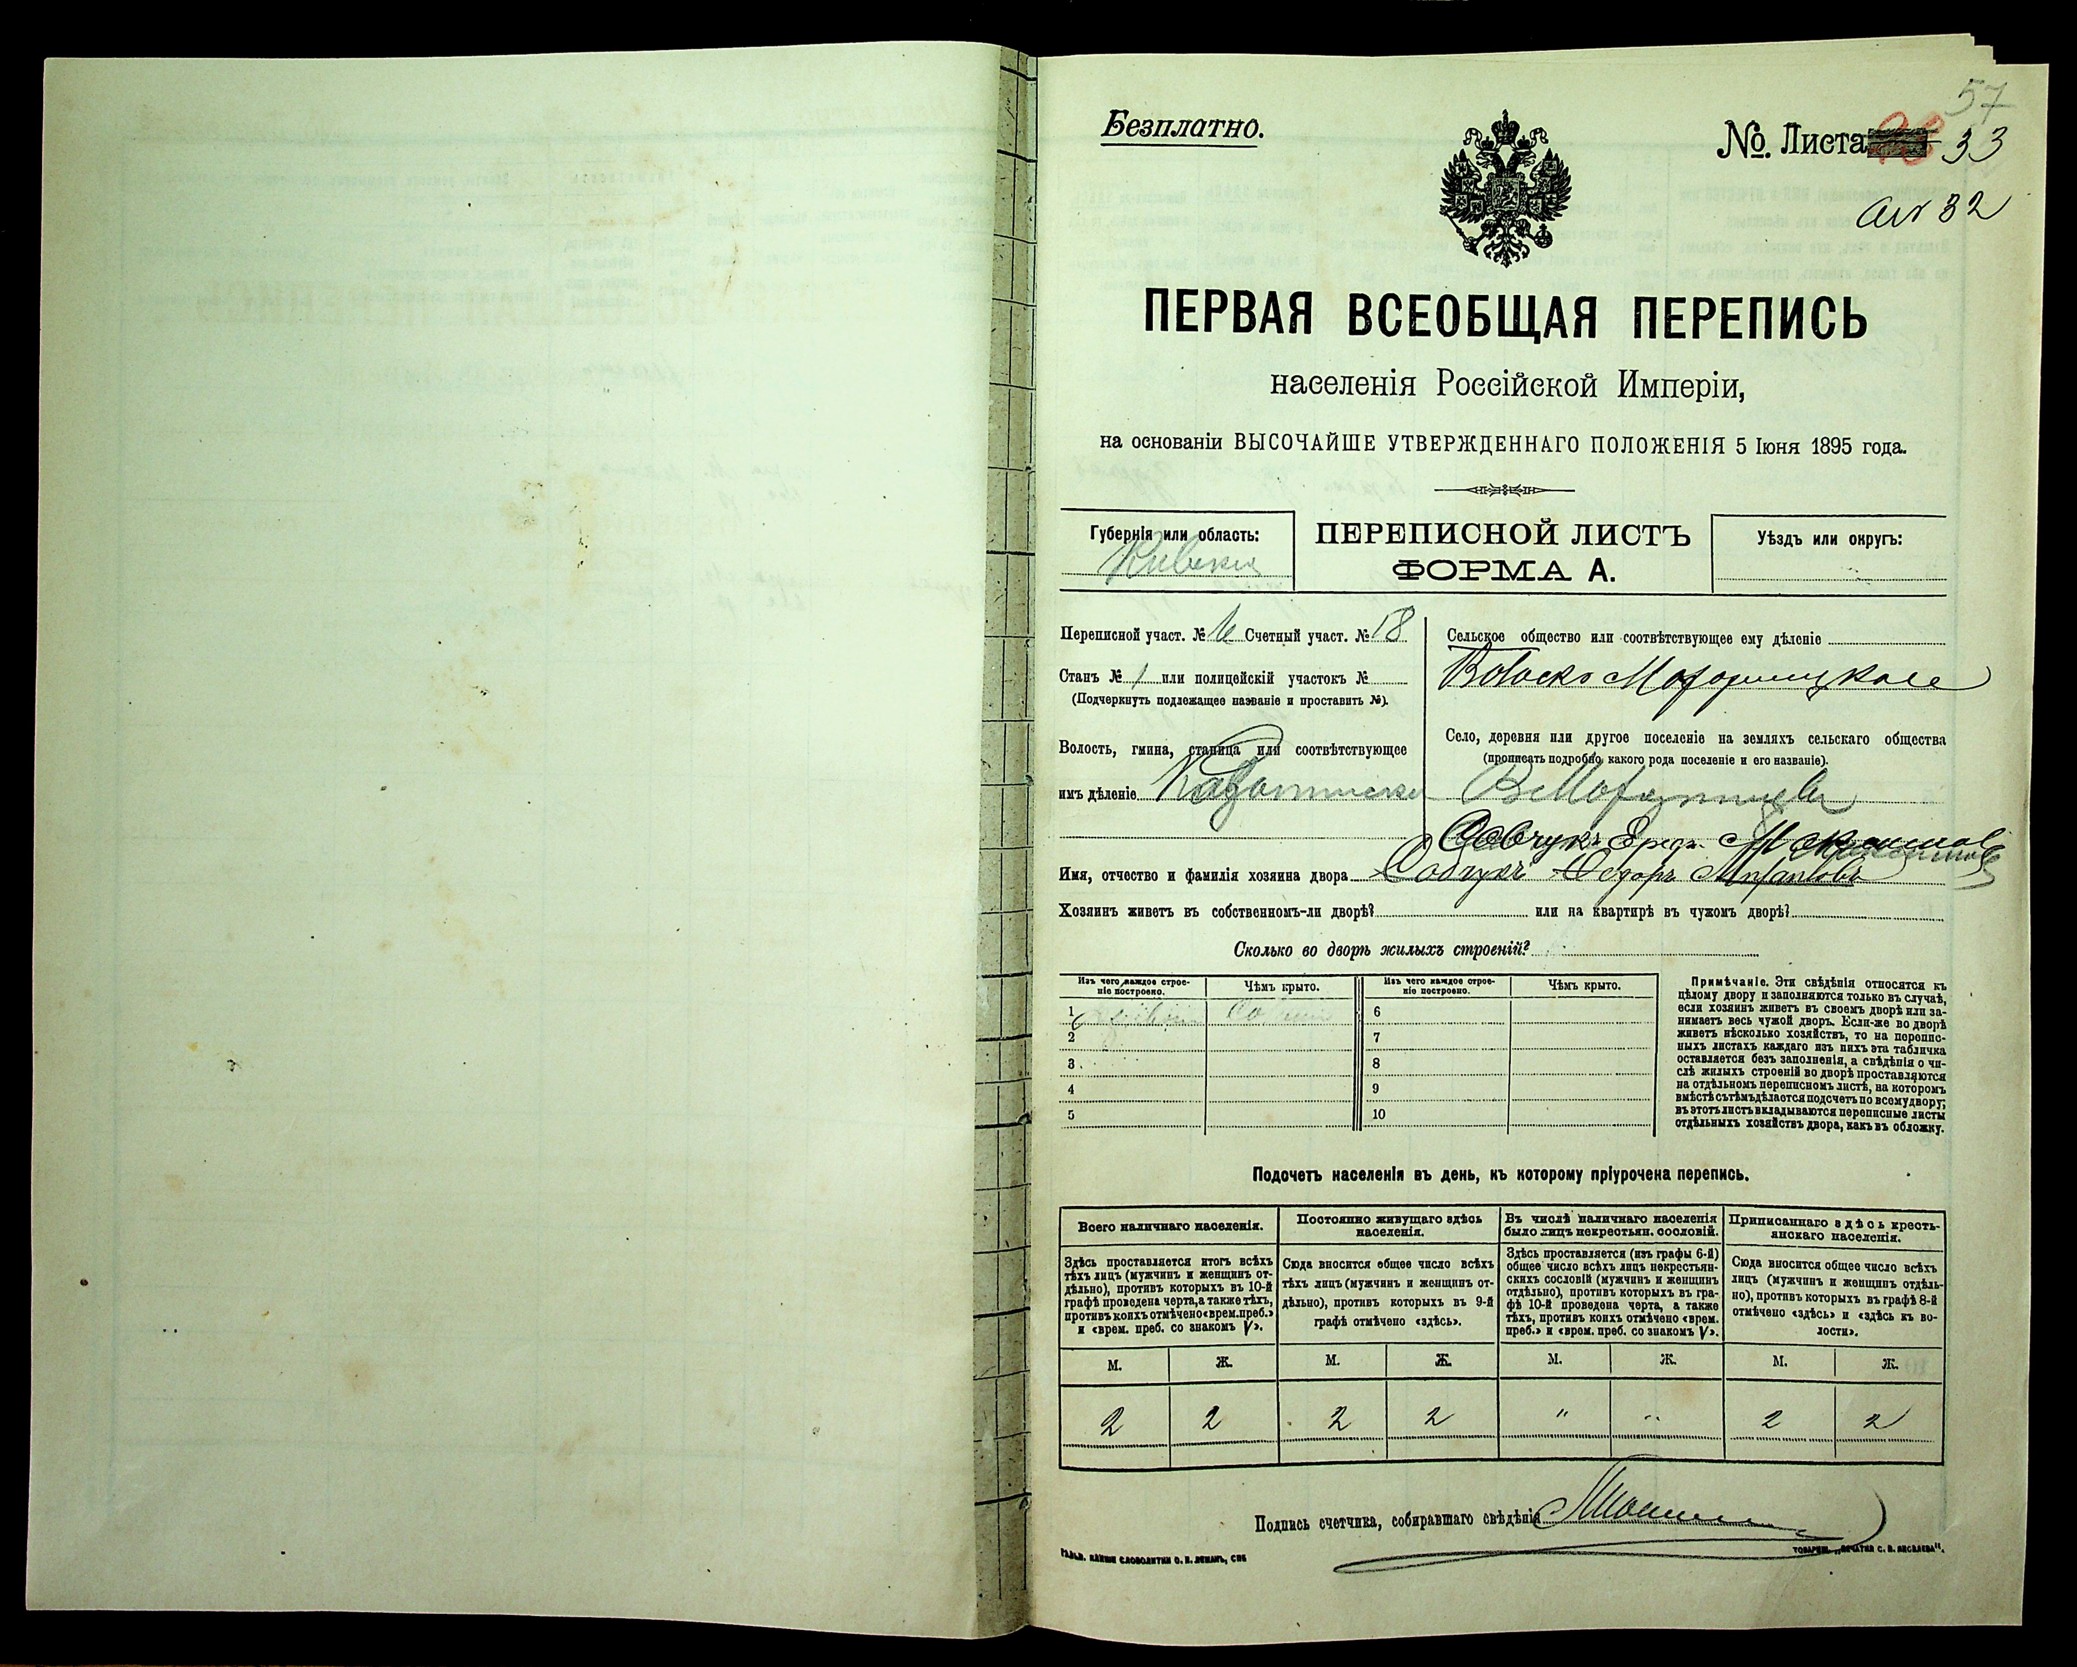 57
Безплатно.
№. Листа 33
32
ПЕРВАЯ ВСЕОБЩАЯ ПЕРЕПИСЬ
населенія Россійской Имперіи,
на основаніи ВЫСОЧАЙШЕ УТВЕРЖДЕННАГО ПОЛОЖЕНІЯ 5 Іюня 1895 года.
Губернія или область:
Кіевская
ПЕРЕПИСНОЙ ЛИСТЪ
ФОРМА А.
Уѣздъ или округъ:
Переписной участ. № Счетный участ. № 18
Станъ № 1 или полицейскій участокъ №
(Подчеркнуть подлежащее названіе и проставить №).
Волость, гмина, станица или соотвѣтствующее
имъ дѣленіе
Сельское общество или соотвѣтствующее ему дѣленіе
Село, деревня или другое поселеніе на земляхъ сельскаго общества
(прописать подробно, какого рода поселеніе и его названіе).
Савчукъ
Имя, отчество и фамилія хозяина двора Савчукъ Федоръ
Хозяинъ живетъ въ собственномъ-ли дворѣ? или на квартирѣ въ чужомъ дворѣ?
Сколько во дворѣ жилыхъ строеній?
Изъ чего каждое строе-
ніе построено.
Чѣмъ крыто.
Изъ чего каждое строе-
ніе построено.
Чѣмъ крыто.
1 6
2 7
3 8
4 9
5 10
Примѣчаніе. Эти свѣдѣнія относятся къ
цѣлому двору и заполняются только въ случаѣ,
если хозяинъ живетъ въ своемъ дворѣ или за-
нимаетъ весь чужой дворъ. Если-же во дворѣ
живетъ нѣсколько хозяйствъ, то на перепис-
ныхъ листахъ каждаго изъ нихъ эта табличка
оставляется безъ заполненія, а свѣдѣнія о чи-
слѣ жилыхъ строеній во дворѣ проставляются
на отдѣльномъ переписномъ листѣ, на которомъ
вмѣстѣ съ тѣмъ дѣлается подсчетъ по всему двору;
въ этотъ листъ вкладываются переписные листы
отдѣльныхъ хозяйствъ двора, какъ въ обложку.
Подочетъ населенія въ день, къ которому пріурочена перепись.
Всего наличнаго населенія.
Постоянно живущаго здѣсь
населенія.
Въ числѣ наличнаго населенія
было лицъ некрестьян. сословій.
Приписаннаго здѣсь кресть-
янскаго населенія.
Здѣсь проставляется итогъ всѣхъ
тѣхъ лицъ (мужчинъ и женщинъ от-
дѣльно), противъ которыхъ въ 10-й
графѣ проведена черта, а также тѣхъ,
противъ коихъ отмѣчено «врем. преб.»
и «врем. преб. со знакомъ V».
Сюда вносится общее число всѣхъ
тѣхъ лицъ (мужчинъ и женщинъ от-
дѣльно), противъ которыхъ въ 9-й
графѣ отмѣчено «здѣсь».
Здѣсь проставляется (изъ графы 6-й)
общее число всѣхъ лицъ некрестьян-
скихъ сословій (мужчинъ и женщинъ
отдѣльно), противъ которыхъ въ гра-
фѣ 10-й проведена черта, а также
тѣхъ, противъ коихъ отмѣчено «врем.
преб.» и «врем. преб. со знакомъ V».
Сюда вносится общее число всѣхъ
лицъ (мужчинъ и женщинъ отдѣль-
но), противъ которыхъ въ графѣ 8-й
отмѣчено «здѣсь» и «здѣсь къ во-
лости».
М. Ж. М. Ж. М. Ж. М. Ж.
2 2 2 2 " " 2 2
Подпись счетчика, собиравшаго свѣдѣнія